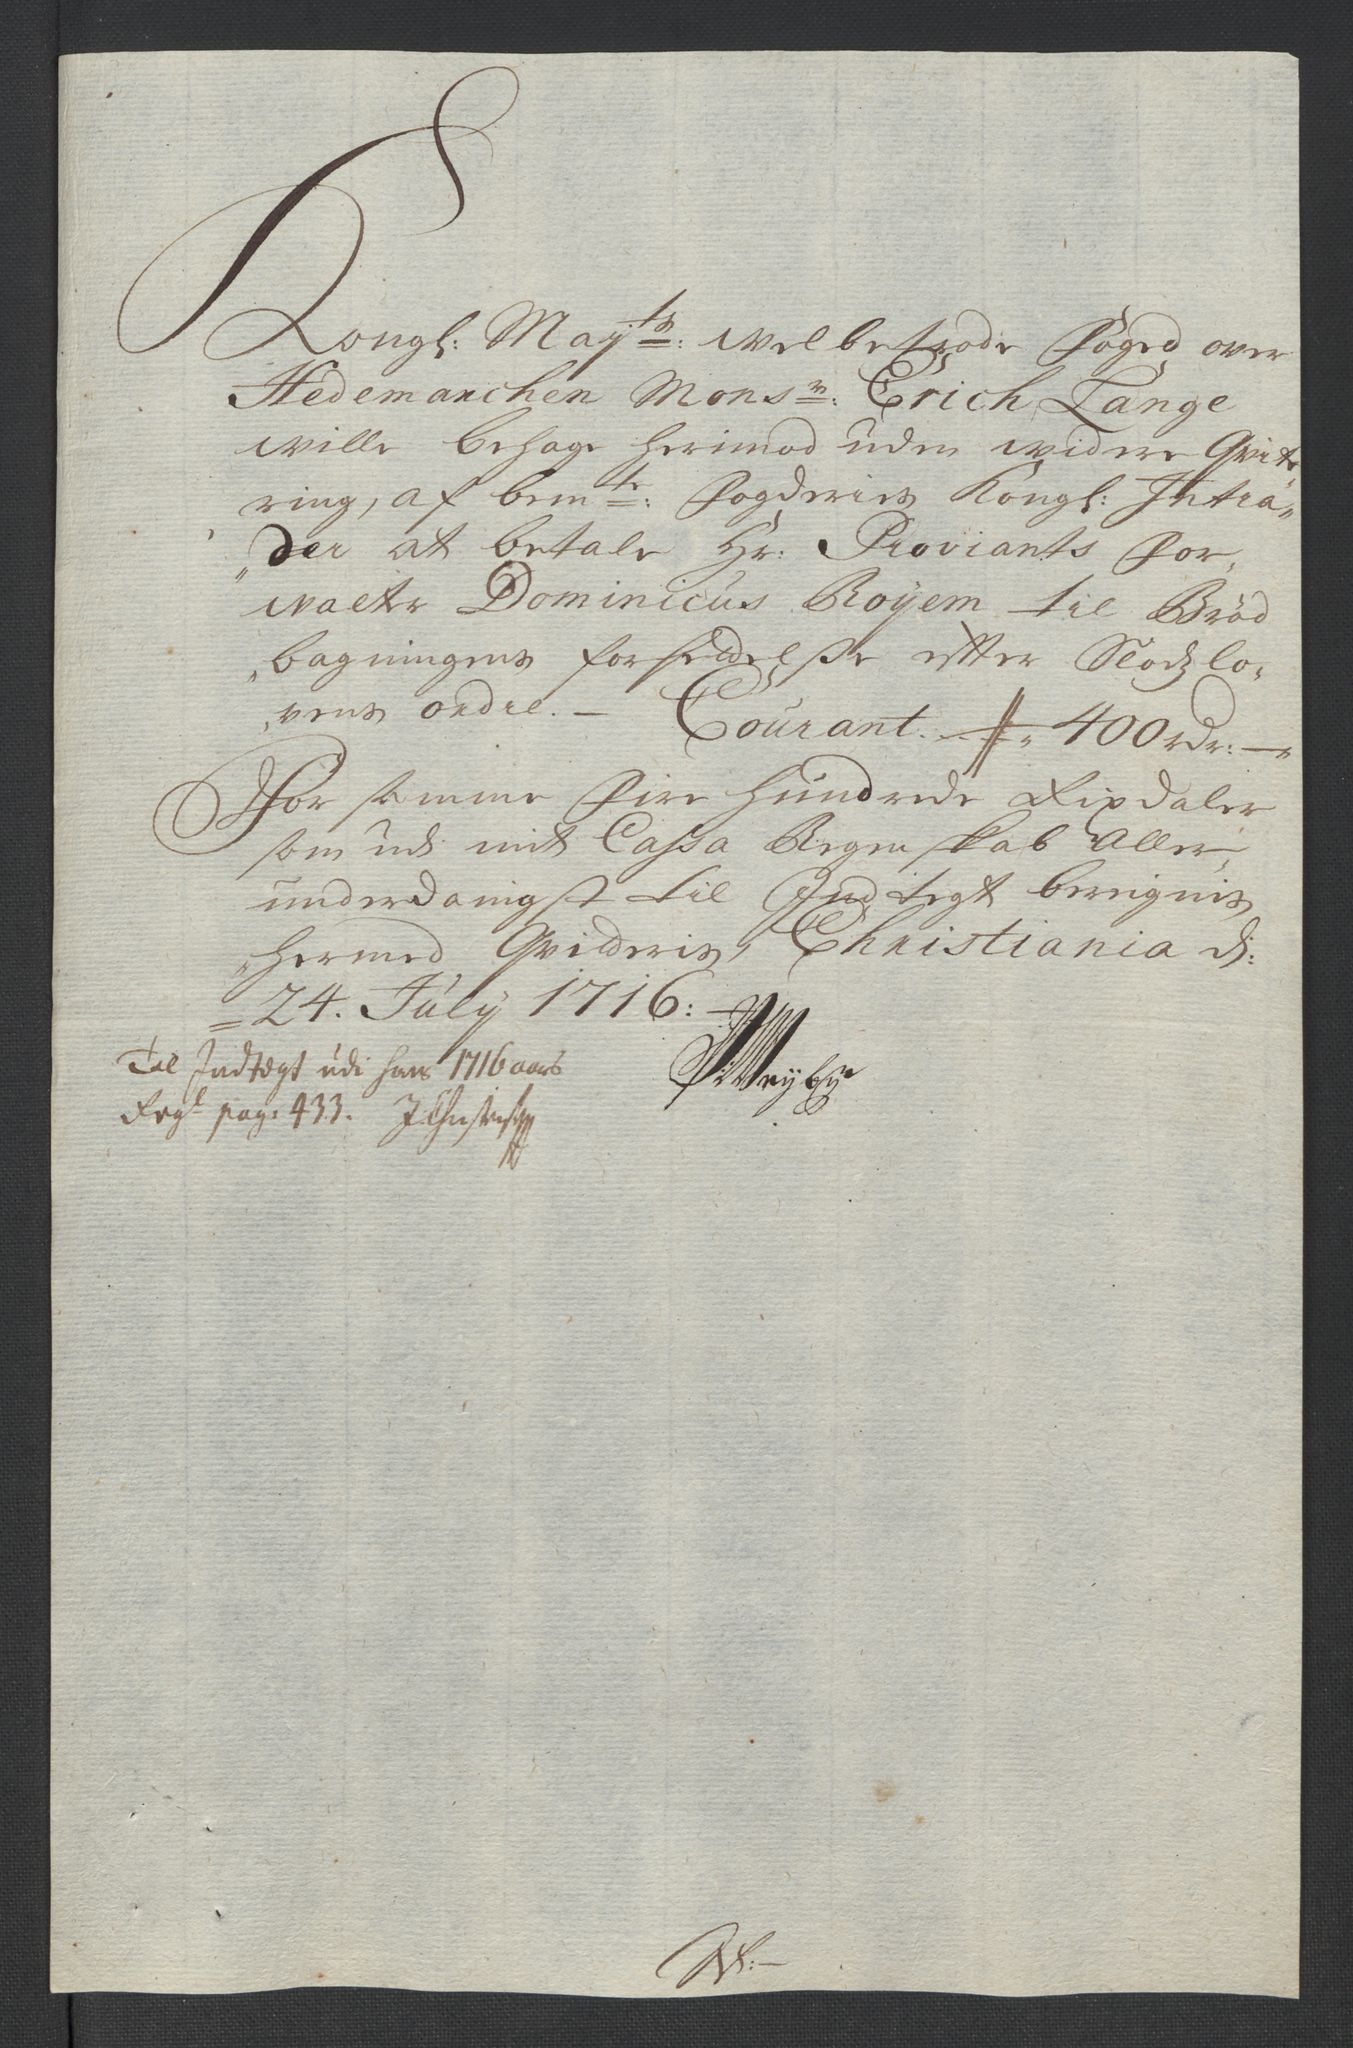 Kongl: May:ts: welbetrode Foged over
Hedemarchen Mons:r: Erich Lange
wille behage herimod uden widere Qvite
ring, af bem:te: Fogderies Kongl: Intra„
„der at betale Hr: Proviants For„
walter Dominicus Royem til Brød
„bagningens forskudelsse efter Slodzlo„
„vens ordre. – Courant. – 400 rdr: –
For samme Fire hundrede Rixdaler
som udi mit Cassa Regenskab aller„
underdanigst til Indtegt beregnis
„hermed Qviteris, Christiania d:
24. July 1716: –
Til Indtegt udi hans 1716 aars
Regl pag: 433.